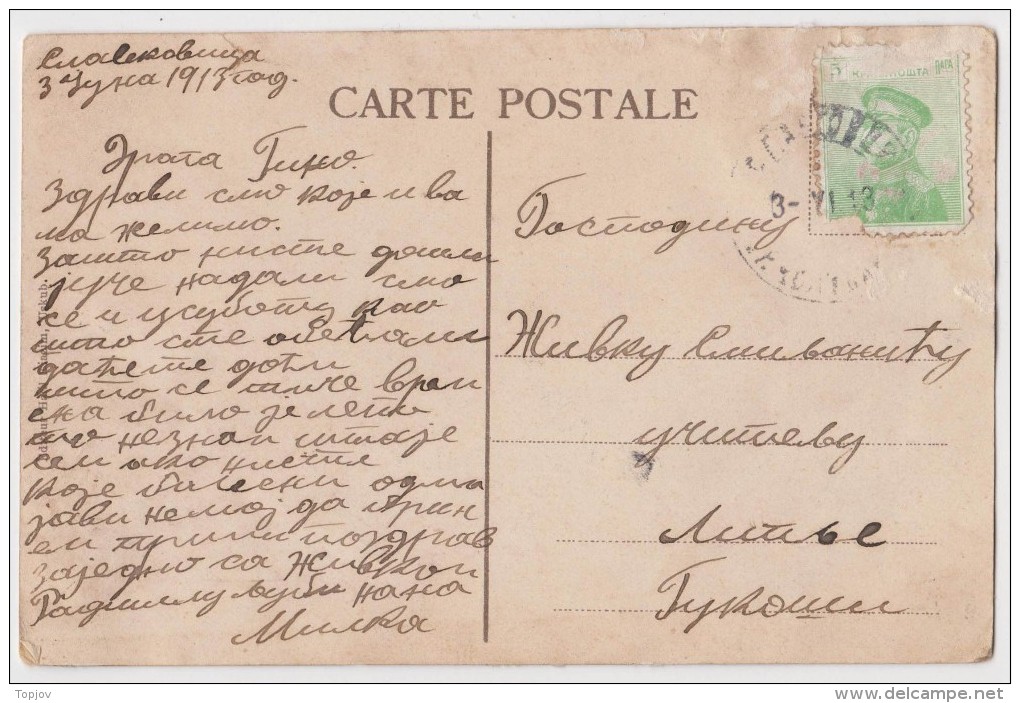 Славковица
3 Јуна 1913 год.
CARTE POSTALE
5
ПОШТА
ПАРА
3-VI 13
Здрави смо које и ва
ма желимо.
Зашто нисте дошли
јуче надали смо
се и у суботу као
што сте обећали
да ћете доћи
што се тиче време
на било је лепи
то незнам шта је
сем ако нисте
које болесни одма
јави немој да брин
ем прими поздрав
заједно са Живком
љуби нана
Милка
Господину
Живку Смиљанићу
учитељу
Липље
Гукоши
Topjov
www.delcampe.net